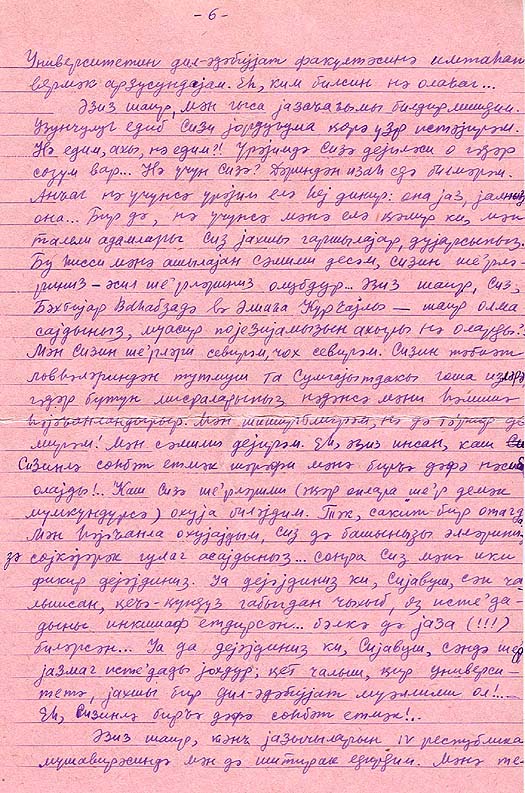 -6-
Университетин дил-әдәбијјат факултәсинә имтаһан
вермәк арзусундајам. Еһ, ким билсин нә олаҹаг...
Әзиз шаир, мән гыса јазаҹағымы билдирмишдим.
Узунчулуг едиб Сизи јордуғума көрә үзр истәјирәм.
Нә едим, ахы, нә едим?! Үрәјимдә Сизә дејиләси о гәдәр
сөзүм вар... Нә үчүн Сизә? Дәриндән изаһ едә билмирәм.
Анҹаг нә үчүнсә үрәјим елә һеј дикир: она јаз, јалныз
она... Бир дә, нә үчүнсә мәнә елә кәлир ки, мән
талели адамлары Сиз јахшы гаршылајар, дујарсыныз.
Бу һисси мәнә ашылајан сәмими десәм, сизин ше'рлә-
риниз – әсил ше'рләриниз олубдур... Әзиз шаир, Сиз,
Бәхтијар Ваһабзадә вә Әлиаға Күрчајлы — шаир олма
сајдыныз, мүасир поезијамызын ахыры нә оларды?!
Мән Сизин ше'рләри севирәм, чох севирәм. Сизин тәбиәт
лөвһәләриндән тутмуш та Сумгајытдакы гоша
гәдәр бүтүн әсәрләриниз нәдәнсә мәни һәмишә
һәјәҹанландырыр. Мән шиширтмирәм, нә дә тә'риф де-
мирәм! Мән сәмими дејирәм. Еһ, әзиз инсан, каш
Сизинлә сөһбәт етмәк шәрәфи мәнә бирҹә дәфә нәсиб
олајды!.. Каш Сизә ше'рләрими (әҝәр онлара ше'р демәк
мүмкүндүрсә) охуја биләјдим. Тәк, сакит бир отагда
Мән һәјәҹанла охујајдым, Сиз дә башынызы әлләриниз
зә сөјкәјәрәк гулаг асајдыныз... Сонра Сиз мәнә ики
фикир дејәјдиниз. Ја дејәјдиниз ки, Сијавуш, сән ча-
лышсан, ҝеҹә-ҝүндүз габығдан чыхыб, өз исте'да-
дыны инкишаф етдирсән... бәлкә дә јаза (!!!)
биләрсән... Ја да дејәјдиниз ки, Сијавуш, сәндә ше'р
јазмаг исте'дады јохдур; ҝет чалыш, ҝир универси-
тетә, јахшы бир дил-әдәбијјат мүәллими ол!...
Еһ, Сизинлә бирҹә дәфә сөһбәт етмәк!..
Әзиз шаир, ҝәнҹ јазычыларын IV республика
мүшавирәсиндә мән дә иштирак едирдим. Мәнә те-